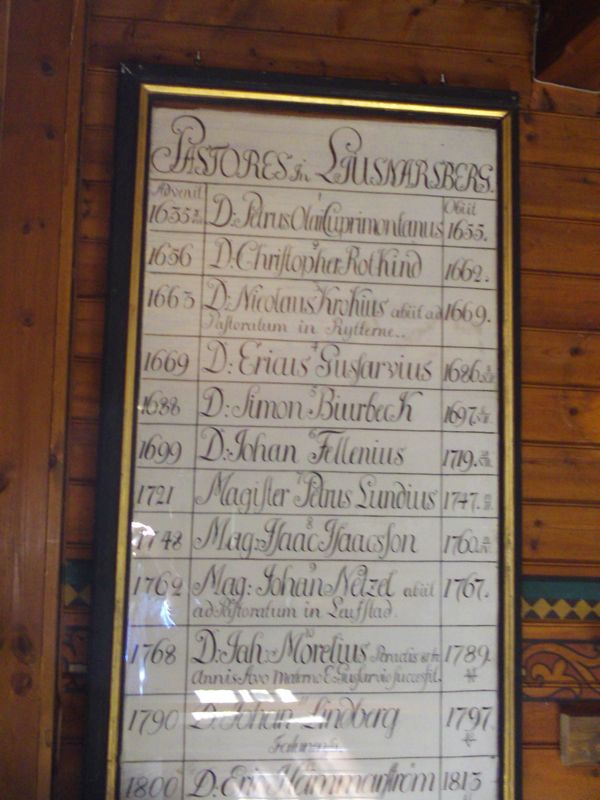 PASTORES in LIUSNARSBERG.
Advenit Obiit
1
1635 D: Petrus Olai Cuprimontanus 1655.
2
1656 D. Christopher Rotkind 1662.
3
1663 D: Nicolaus Krokius abiit ad 1669.
Pastoratum in Rytterne..
4
1669 D: Ericus Gussarvius 1686.
5
1688 D: Simon Biuurbeck 1697.
6
1699 D: Johan Fellenius 1719.
7
1721 Magister Petrus Lundius 1747.
8
1748 Mag: Isaac Isaacsson 1760.
9
1762 Mag: Johan Netzel abiit 1767.
ad Pastoratum in Leufstad.
10
1768 D: Jah: Morelius 1789.
Annis Avo Materno E. Gussarvio succesit.
1790 D. Johan Lindberg 1797.
1800 D: Eric Hammarström 1813